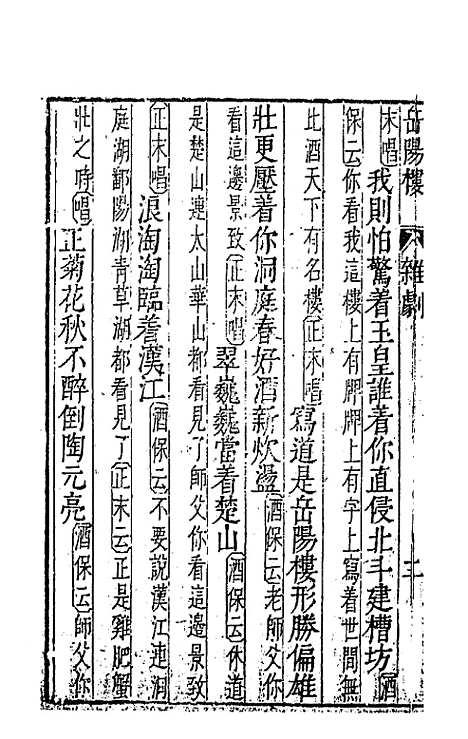 岳陽樓　雜劇　二
末唱我則怕驚着玉皇誰着你直侵北斗建槽坊酒
保云你看我這樓上有牌牌上有字上寫着世間無
比酒天下有名樓正末唱寫道是岳陽樓形勝偏雄
壯更壓着你洞庭春好酒新炊盪酒保云老師父你
看這邊景致正末唱翠巍巍當着楚山酒保云休道
是楚山連太山華山都看見了師父你看這邊景致
正末唱浪淘淘臨着漢江酒保云不要說漢江連洞
庭湖鄱陽湖青草湖都看見了正末云正是雞肥蟹
壯之時唱正菊花秋不醉倒陶元亮酒保云師父你